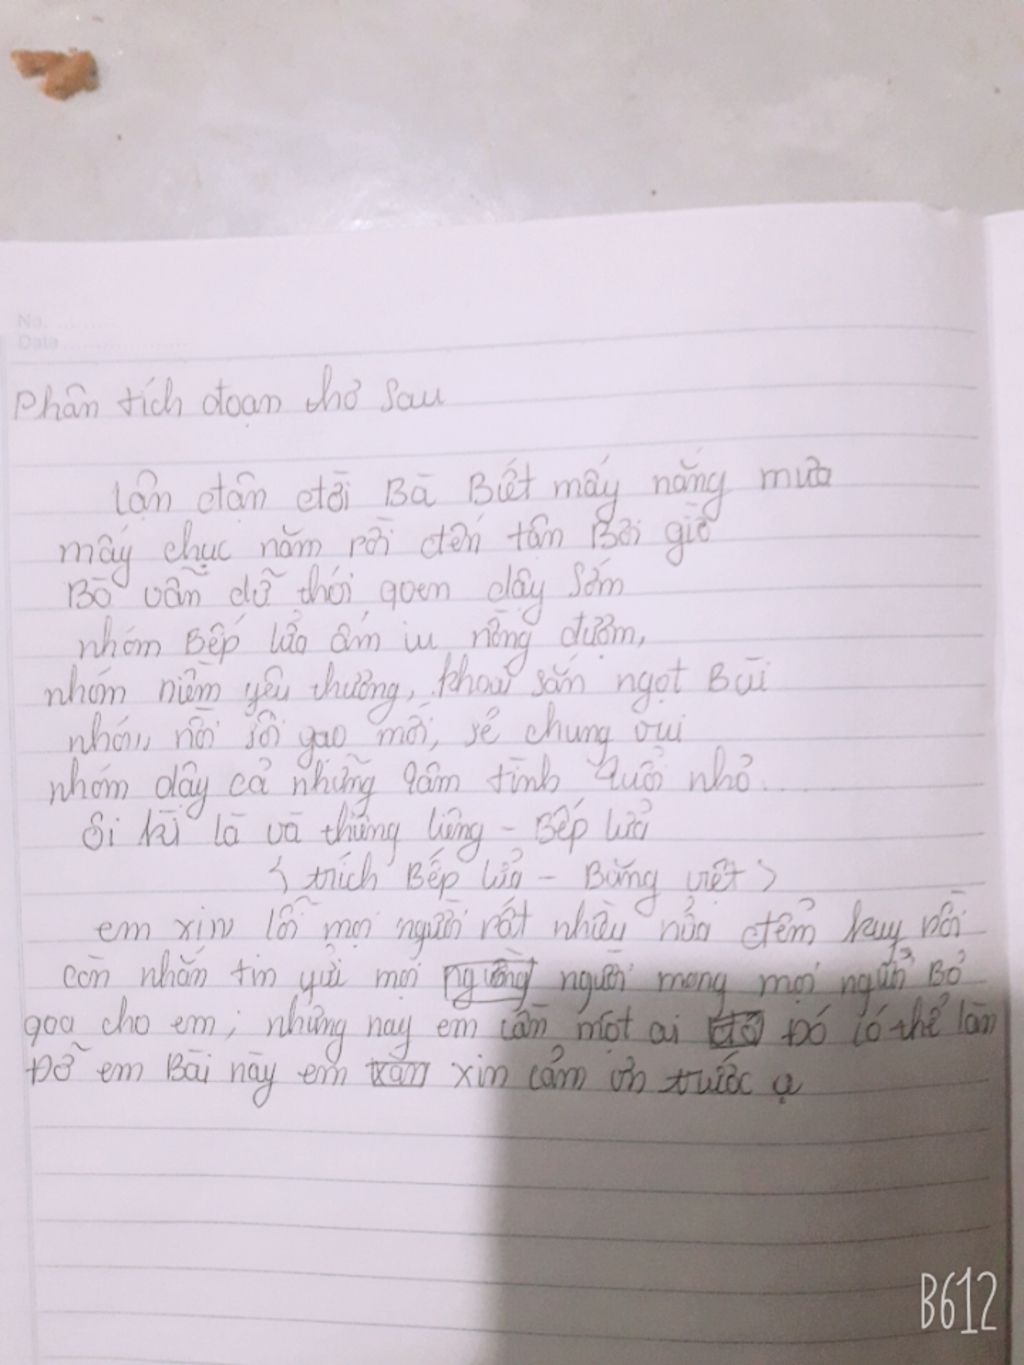 No. ..........
Date ....................
Phân tích đoạn thơ sau
lận đận đời Bà Biết mấy nắng mưa
mấy chục năm rồi đến tân Bơi giờ
Bò vẫn dữ thói quen dây Sớm
nhóm Bếp lửa ấm iu nồng đượm,
nhóm niềm yêu thương, khoai sắn ngọt Bùi
nhóm nồi sôi gạo mới, sẻ chung vui
nhóm dây cả những tâm tình tuổi nhỏ
Ôi kì lạ và thiêng liêng - Bếp lửa
< trích Bếp lửa - Bằng việt >
em xin lỗi mọi người rất nhiều nửa đêm kuy rồi
còn nhắn tin gửi mọi người người mong mọi người Bỏ
qoa cho em, nhưng nay em cần một ai đó Đó có thể làm
Đỡ em Bài này em xin cảm ơn trước ạ
B612